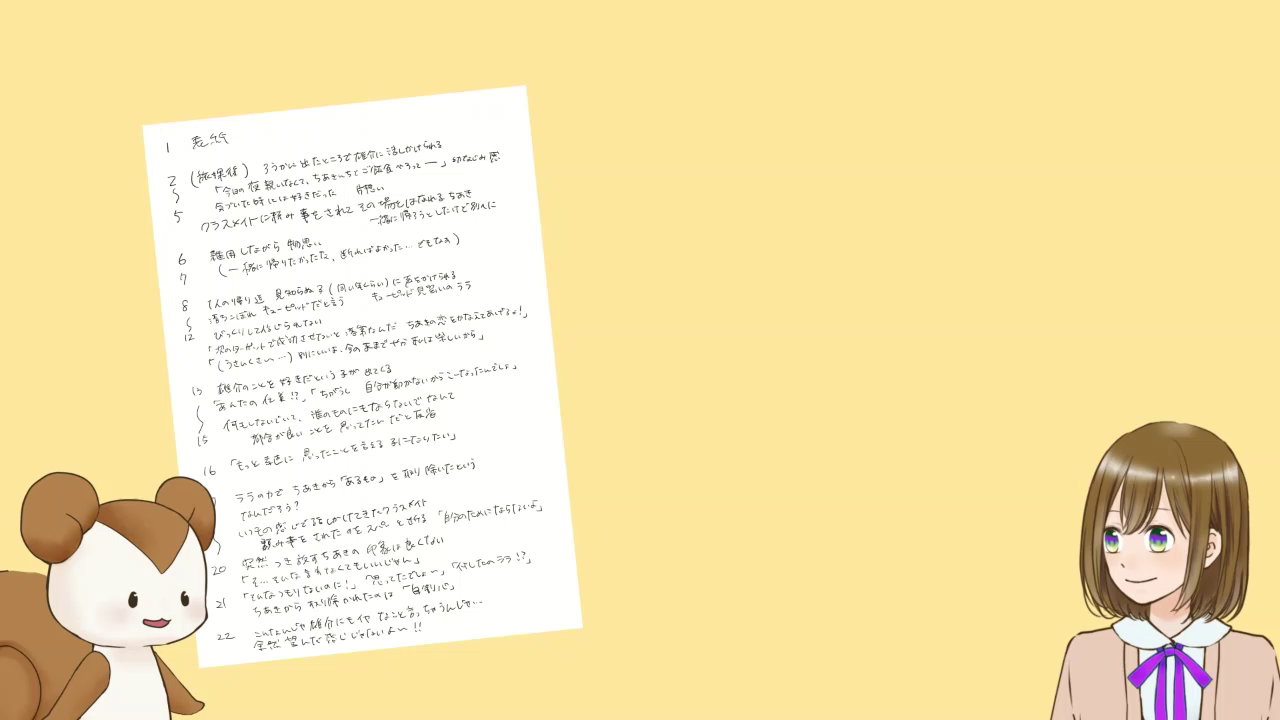 1 表紙
2 (放課後) ろうかに出たところで雄介に話しかけられる
「今日の夜親いなくて、ちあきんちでご飯食べろって―」幼なじみ感
気づいた時には好きだった 片想い
5 クラスメイトに頼み事をされてその場をはなれるちあき
一緒に帰ろうとしたけど別々に
6 雑用しながら物思い
7 (一緒に帰りたかったな、断ればよかった… でもなぁ)
8 1人の帰り道 見知らぬ子(同い年くらい)に声をかけられる
落ちこぼれキューピッドだと言う キューピッド見習いのララ
12 びっくりして信じられない
「次のターゲットで成功させないと落第なんだ ちあきの恋をかなえてあげるよ!」
「(うさんくさい…) 別にいいよ、今のままでやから楽しいから」
13 雄介のことを好きだという子が出てくる
「あんたの仕業!?」「ちがうし 自分が動かないからこーなったんでしょ」
何もしないでいて、誰のものにもならないでなんて
15 都合が良いことを思ってたんだと反省
16 「もっと素直に思ったことを言える子になりたい」
ララの力でちあきから「あるもの」を取り除いたという
なんだろう?
いつもの感じで話しかけてきたクラスメイト
頼み事をされたのをズバッと断る 「自分のためにならないよ」
20 突然つき放すちあきの印象は良くない
「そ…そんな言わなくてもいいじゃん」
「そんなつもりないのに!」「思ってたでしょ〜」「何したのララ!?」
21 ちあきから取り除かれたのは「自制心」
22 こんなんじゃ雄介にもイヤなこと言っちゃうんじゃ…
全然望んだ感じじゃないよ〜!!